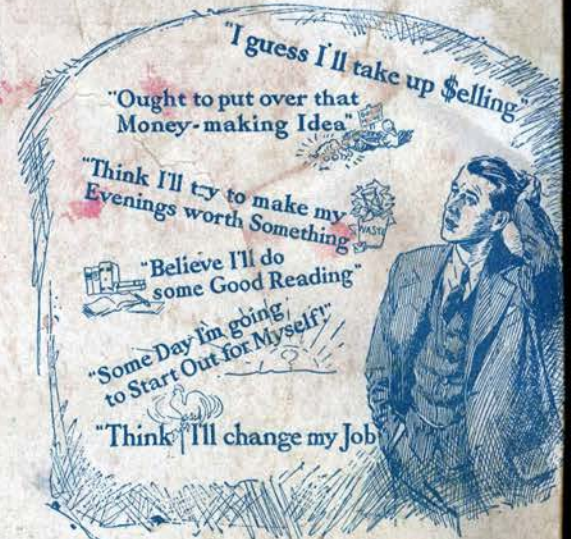 "I guess I'll take up $elling."
"Ought to put over that
Money-making Idea"
"Think I'll try to make my
Evenings worth Something"
WASTE
"Believe I'll do
some Good Reading"
"Some Day I'm going
to Start Out for Myself!"
"Think I'll change my Job